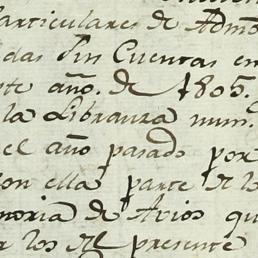 articulares de Admo
das Sin Cuentas en
te año. de 1805.
la Libranza num.
el año pasado por
on ella parte de lo
moria de Arios qu
r los Rl presente